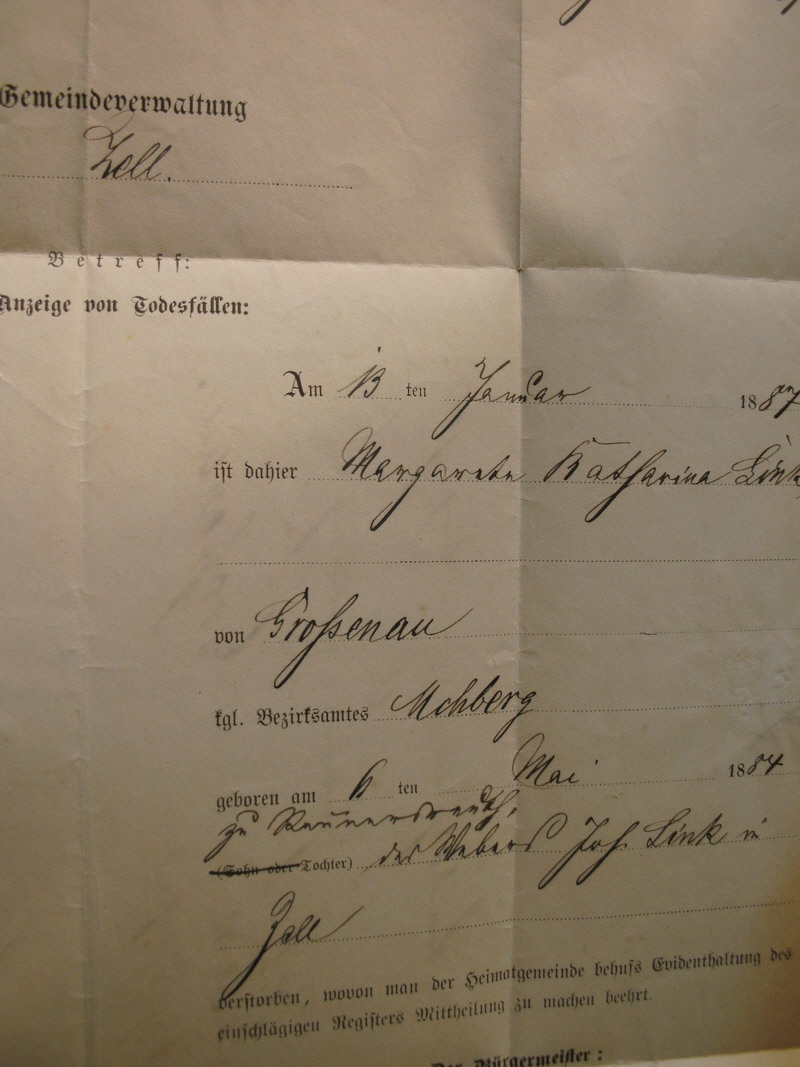 Gemeindeverwaltung
Zell.
Betreff:
Anzeige von Todesfällen:
Am 13 ten Januar 1887
ist dahier Margareta Katharina Link
von Grossenau
kgl. Bezirksamtes Mchberg
geboren am 6 ten Mai 1884
zu
(Sohn oder Tochter) des Webers Joh. Link in
Zell
verstorben, wovon man der Heimatgemeinde behufs Evidenthaltung des
einschlägigen Registers Mittheilung zu machen beehrt.
Der Bürgermeister: